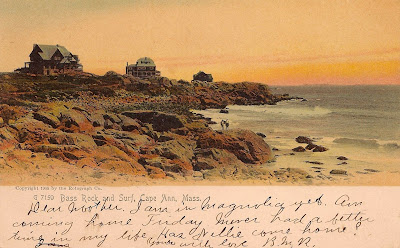 Copyright 1905 by the Rotograph Co.
G 7180 Bass Rock and Surf, Cape Ann, Mass.
Dear Mother, I am in magnolia yet. Am
coming home Friday. Never had a better
time in my life. Has Nellie come home?
Yours with love B.M.N.